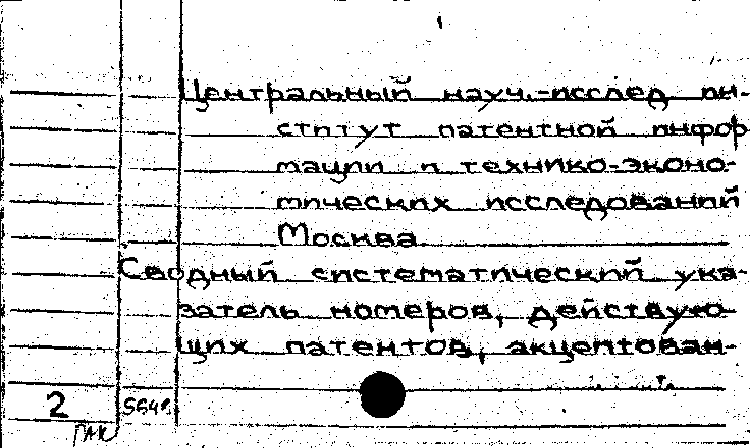 Центральный науч.-исслед ин-
ститут патентной инфор
мации и технико-эконо-
мических исследований
Москва
Сводный систематический ука-
затель номеров, действую-
щих патентов, акцептован-
2
ГАК